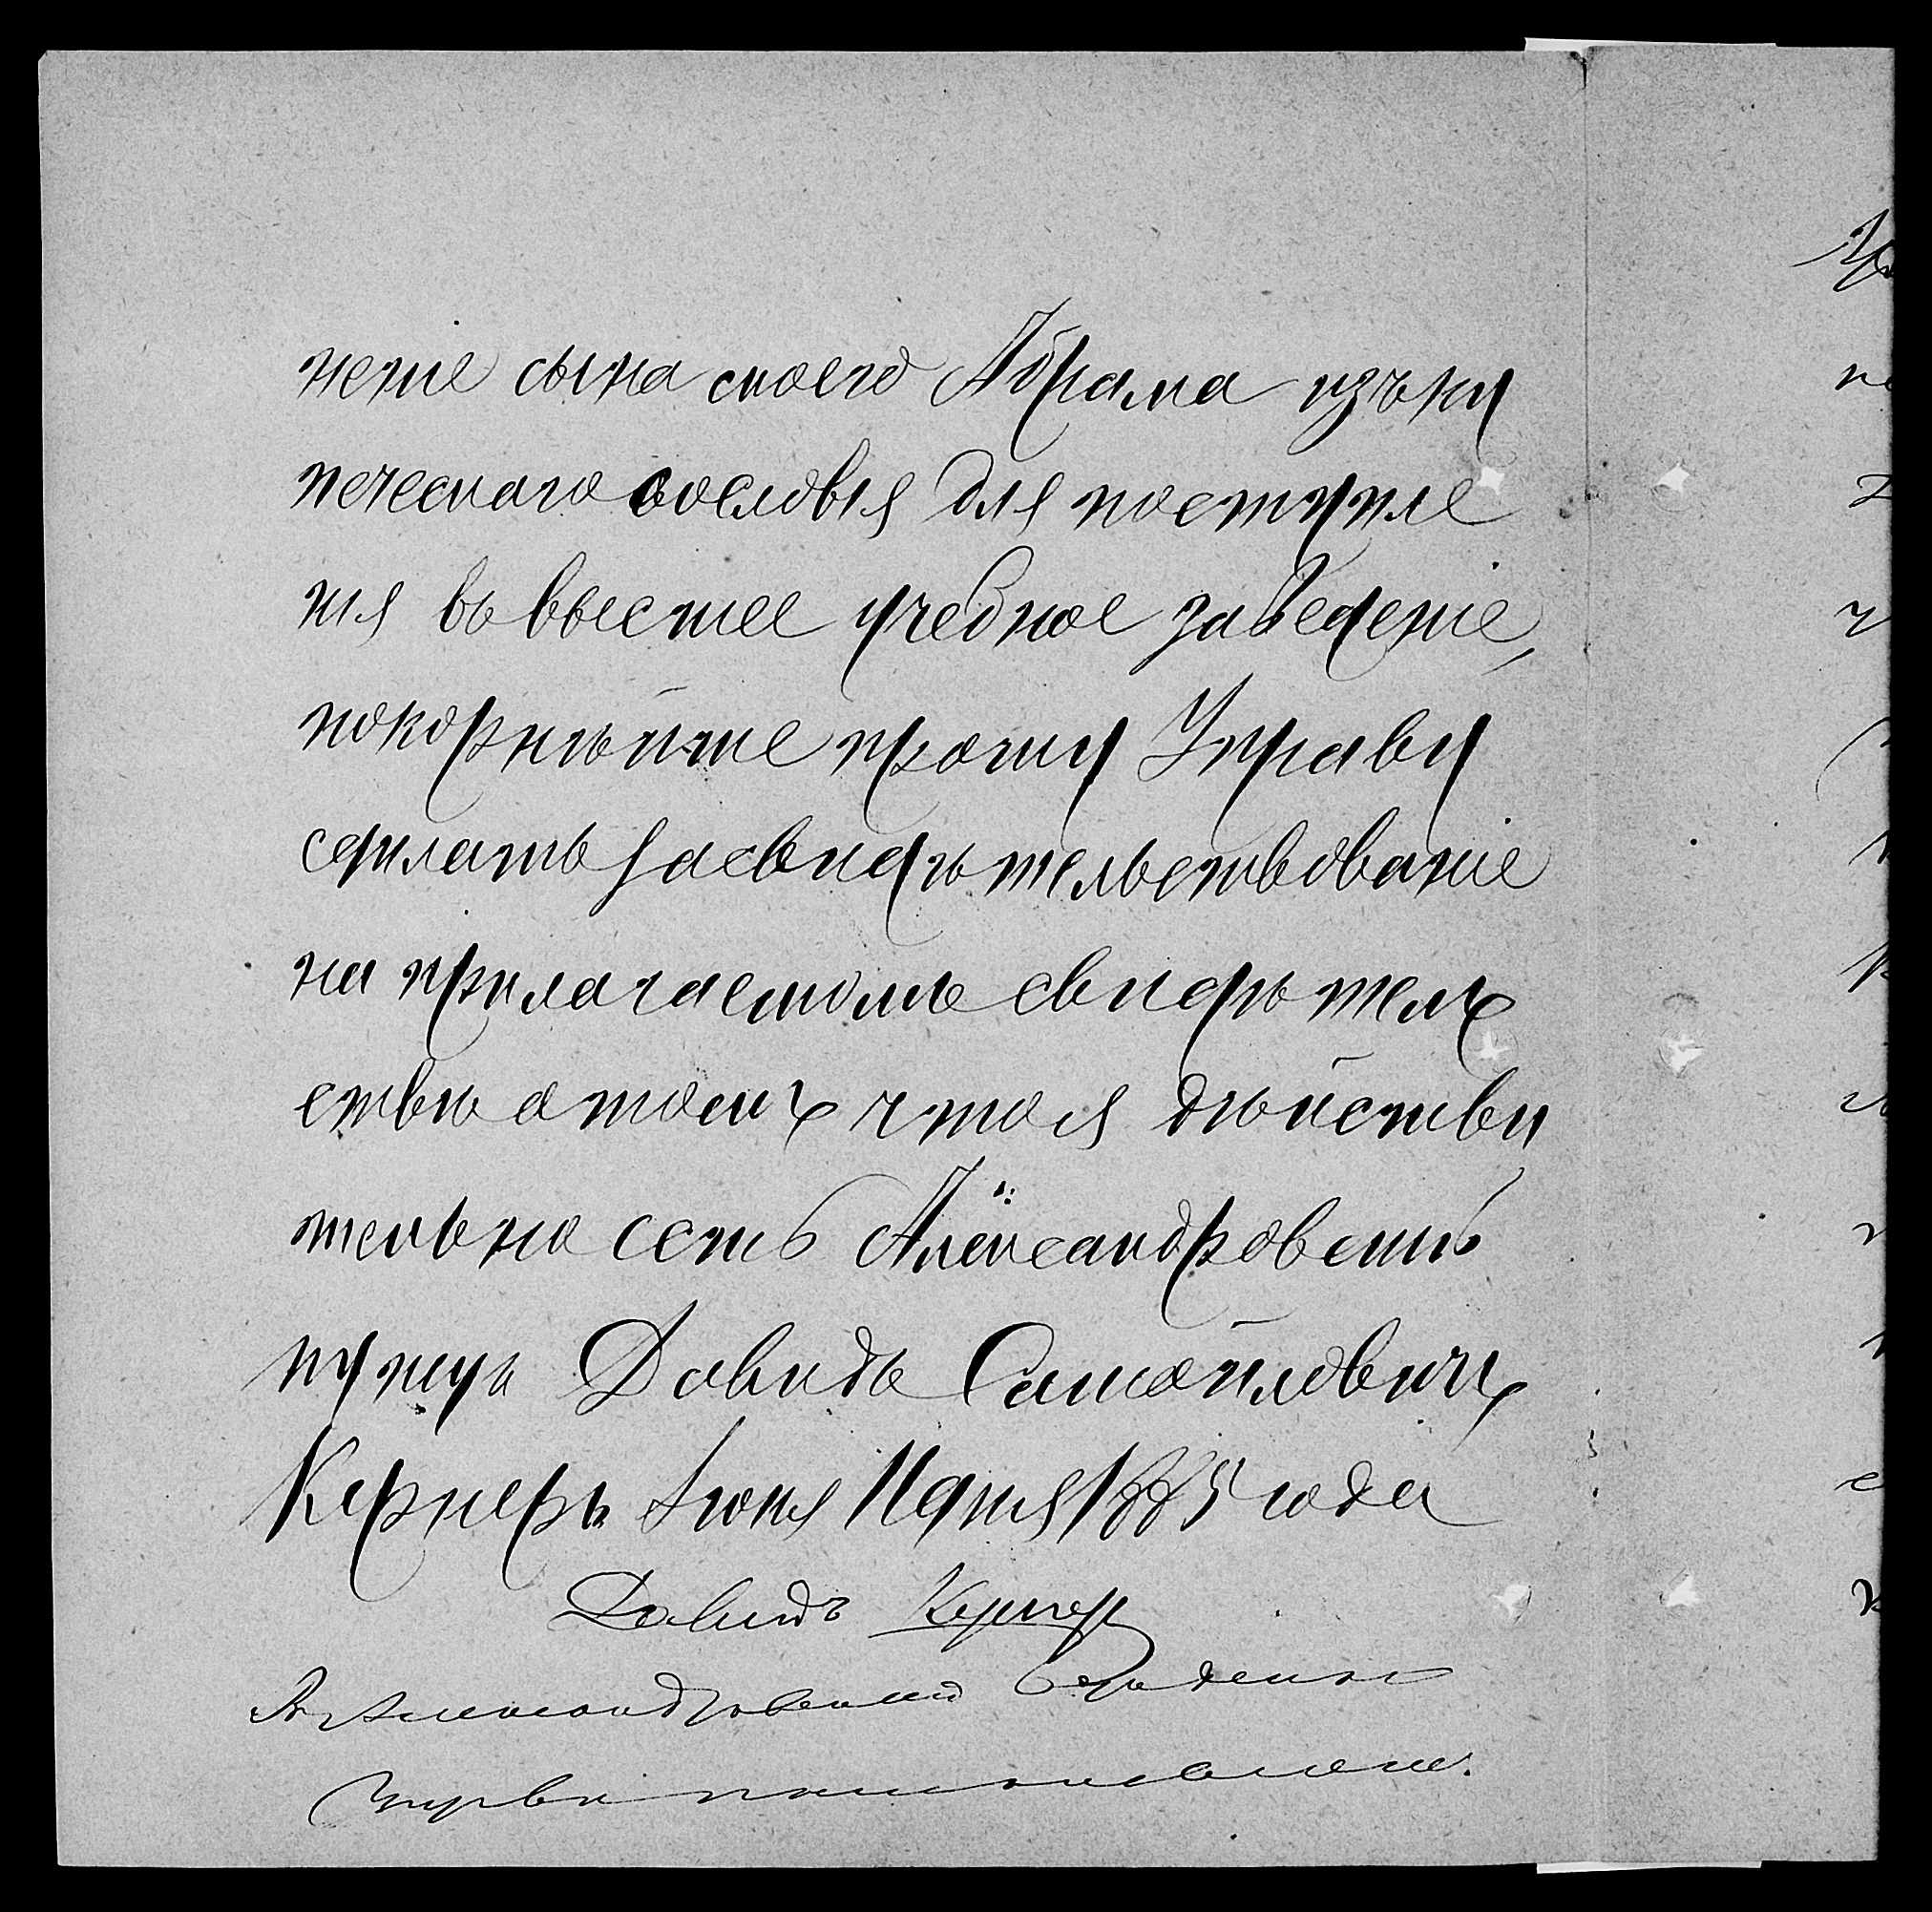 неніе сына своего Абрама изъ ку
печескаго сословія для поступле
нія въ высшее учебное заведеніе,
покорнѣйше прошу Управу
сдѣлать засвидѣтельствованіе
на прилагаемомъ свидѣтель
ствѣ о томъ что я дѣйстви
тельно есть Александровскій
купецъ Давидъ Самойловичъ
Кернеръ Іюня 11 дня 1885 года
Давидъ Кернеръ
Въ Александровской Городской
Управѣ